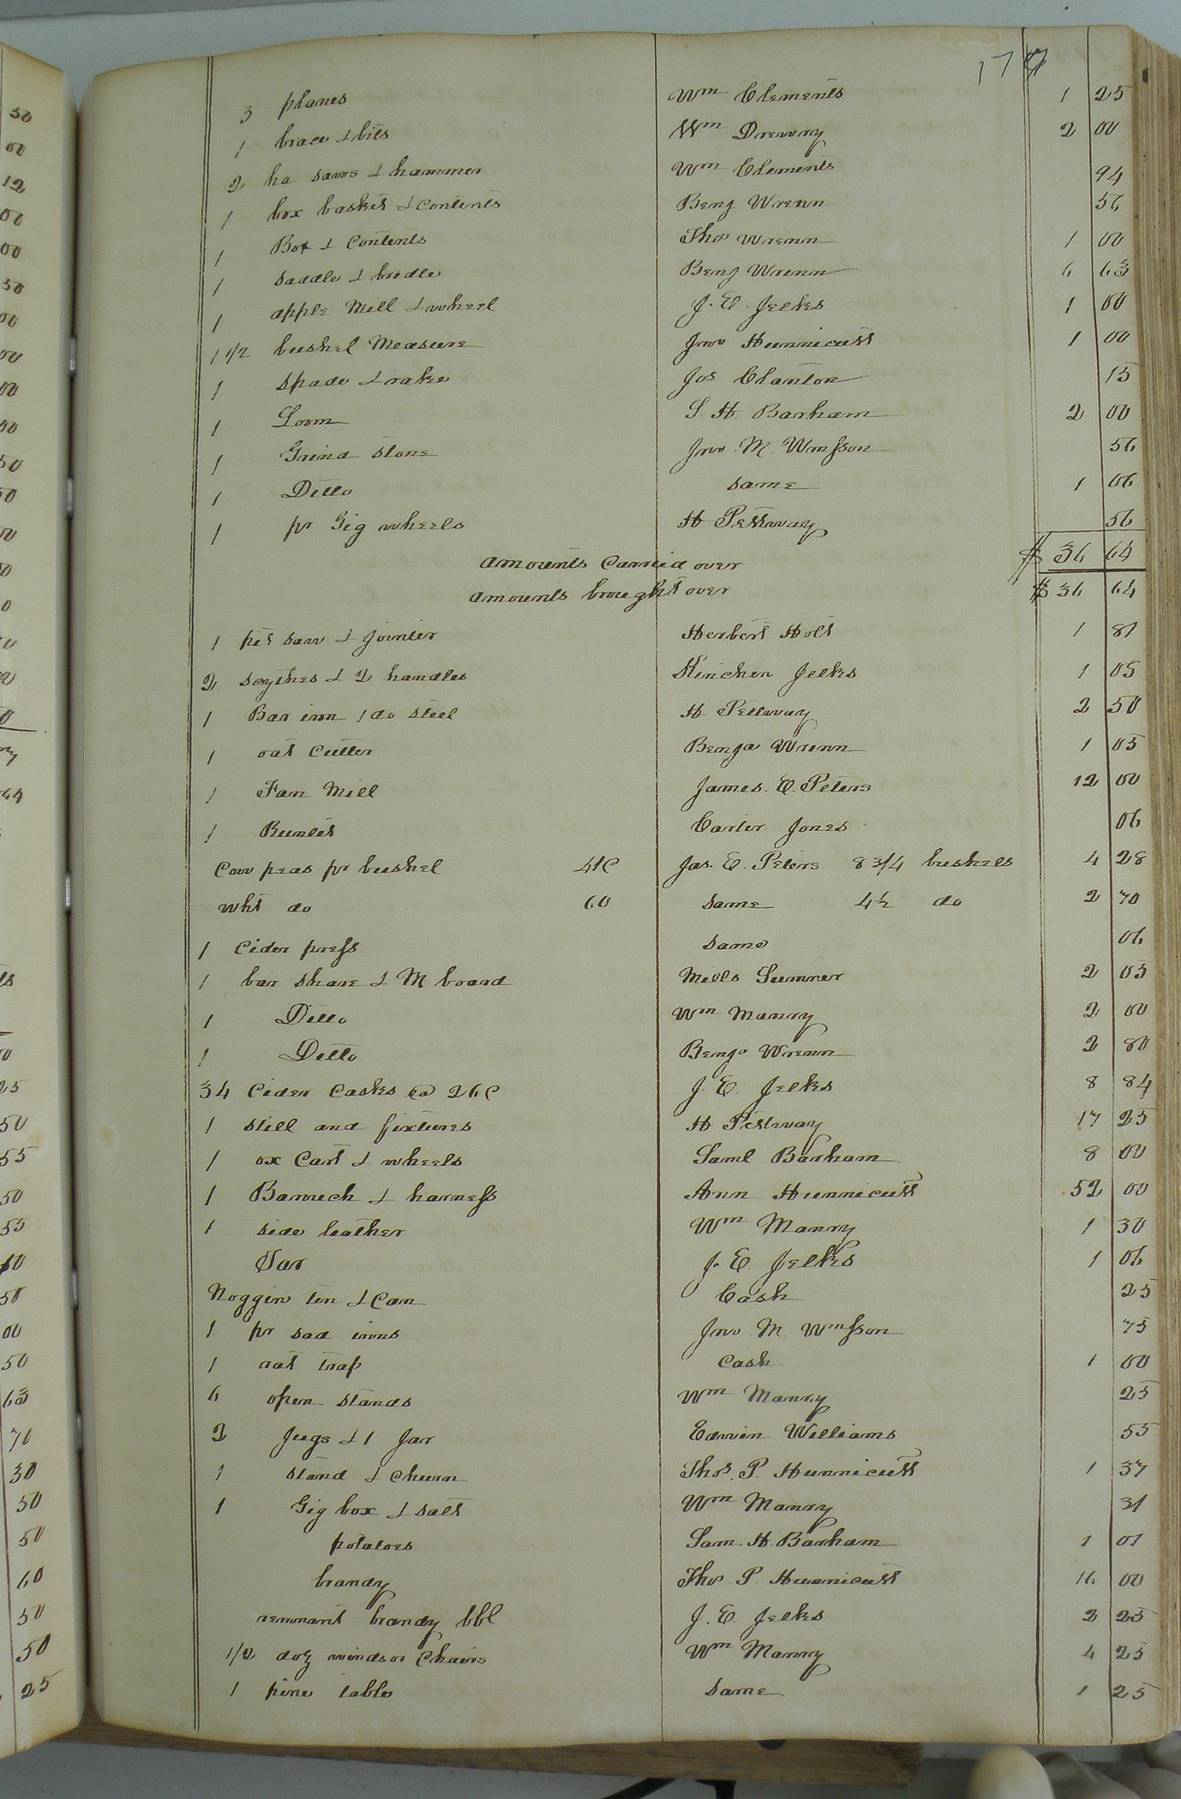 179
3 planes Wm Clements 1 25
1 brace & bits Wm Drewry 2 00
2 ha saws & hammer Wm Clements 94
1 box basket & contents Benj Wrenn 56
1 Box & Contents Thos Wrenn 1 00
1 saddle & bridle Benj Wrenn 6 63
1 apple Mill & wheel J. E. Jelks 1 00
1 1/2 bushel Measure Jno Hunnicutt 1 00
1 spade & rake Jos Clanton 15
1 Loom S. H. Barham 2 00
1 Grind stone Jno. M. Wmsson 56
1 Ditto same 1 06
1 pr Gig wheels H Pettway 56
amounts Carried over $ 36 64
amounts brought over $ 36 64
1 pit saw & jointer Herbert Holt 1 81
2 scythes & 2 handles Kinchen Jelks 1 05
1 Bar iron 1 do steel H Pettway 2 50
1 oat Cutter Benja Wrenn 1 05
1 Fan Mill James. E. Peters 12 00
1 Runlet Carter Jones 06
Cow peas pr bushel 49C Jas. E. Peters 8 3/4 bushels 4 28
Wht do 60 same 4 1/2 do 2 70
1 Cider press same 06
1 bar share & M board Mills Sumner 2 05
1 Ditto Wm Manry 2 00
1 Ditto Benja Wrenn 2 80
34 Cider Casks @ 26C J. E. Jelks 8 84
1 still and fixtures H Pettway 17 25
1 ox Cart & wheels Saml Barham 8 00
1 Barouch & harness Ann Hunnicutt 52 00
1 side leather Wm Manry 1 30
Tar J. E. Jelks 1 06
Noggin tin & Can Cash 25
1 pr sad irons Jno. M. Wmsson 75
1 rat trap Cash 1 00
6 open stands Wm Manry 25
2 Jugs & 1 Jar Edwin Williams 55
1 stand & Churn Thos. P. Hunnicutt 1 37
1 Gig box & salt Wm Manry 31
potatoes Sam. H. Barham 1 01
brandy Thos P. Hunnicutt 16 00
remnant brandy bbl J. E. Jelks 2 25
1/2 doz windsor Chairs Wm Manry 4 25
1 pine table same 1 25